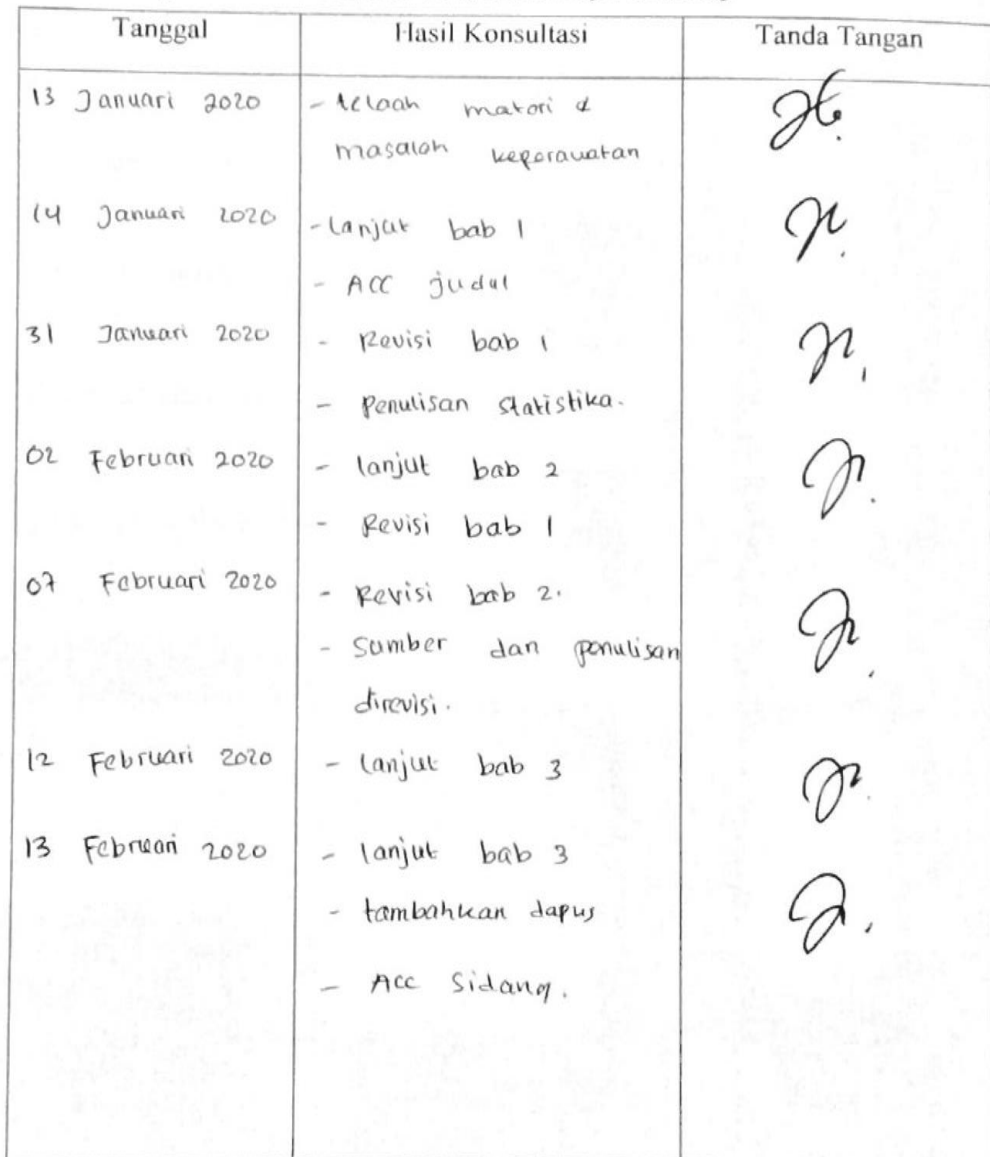 Tanggal Hasil Konsultasi Tanda Tangan
13 Januari 2020 - telaah materi &
masalah keperawatan
14 Januari 2020 - lanjut bab 1
- ACC judul
31 Januari 2020 - Revisi bab 1
- Penulisan statistika.
02 Februari 2020 - lanjut bab 2
- Revisi bab 1
07 Februari 2020 - Revisi bab 2.
- Sumber dan penulisan
direvisi.
12 Februari 2020 - lanjut bab 3
13 Februari 2020 - lanjut bab 3
- tambahkan dapus
- Acc Sidang.